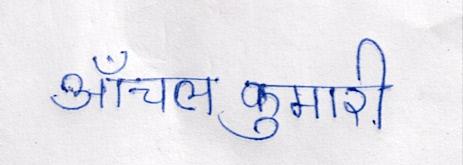 आँचल कुमारी